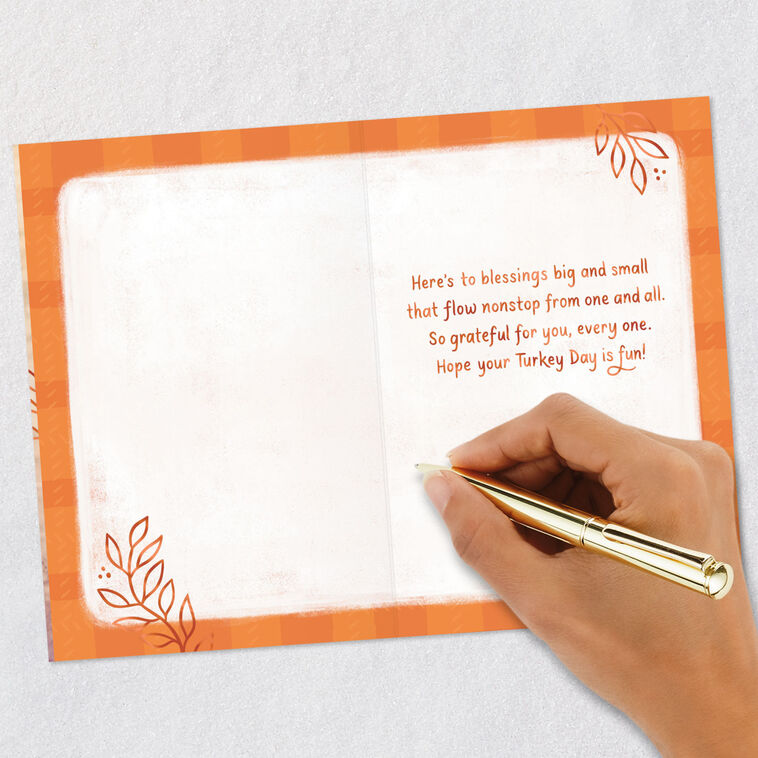 Here's to blessings big and small
that flow nonstop from one and all.
So grateful for you, every one.
Hope your Turkey Day is fun!